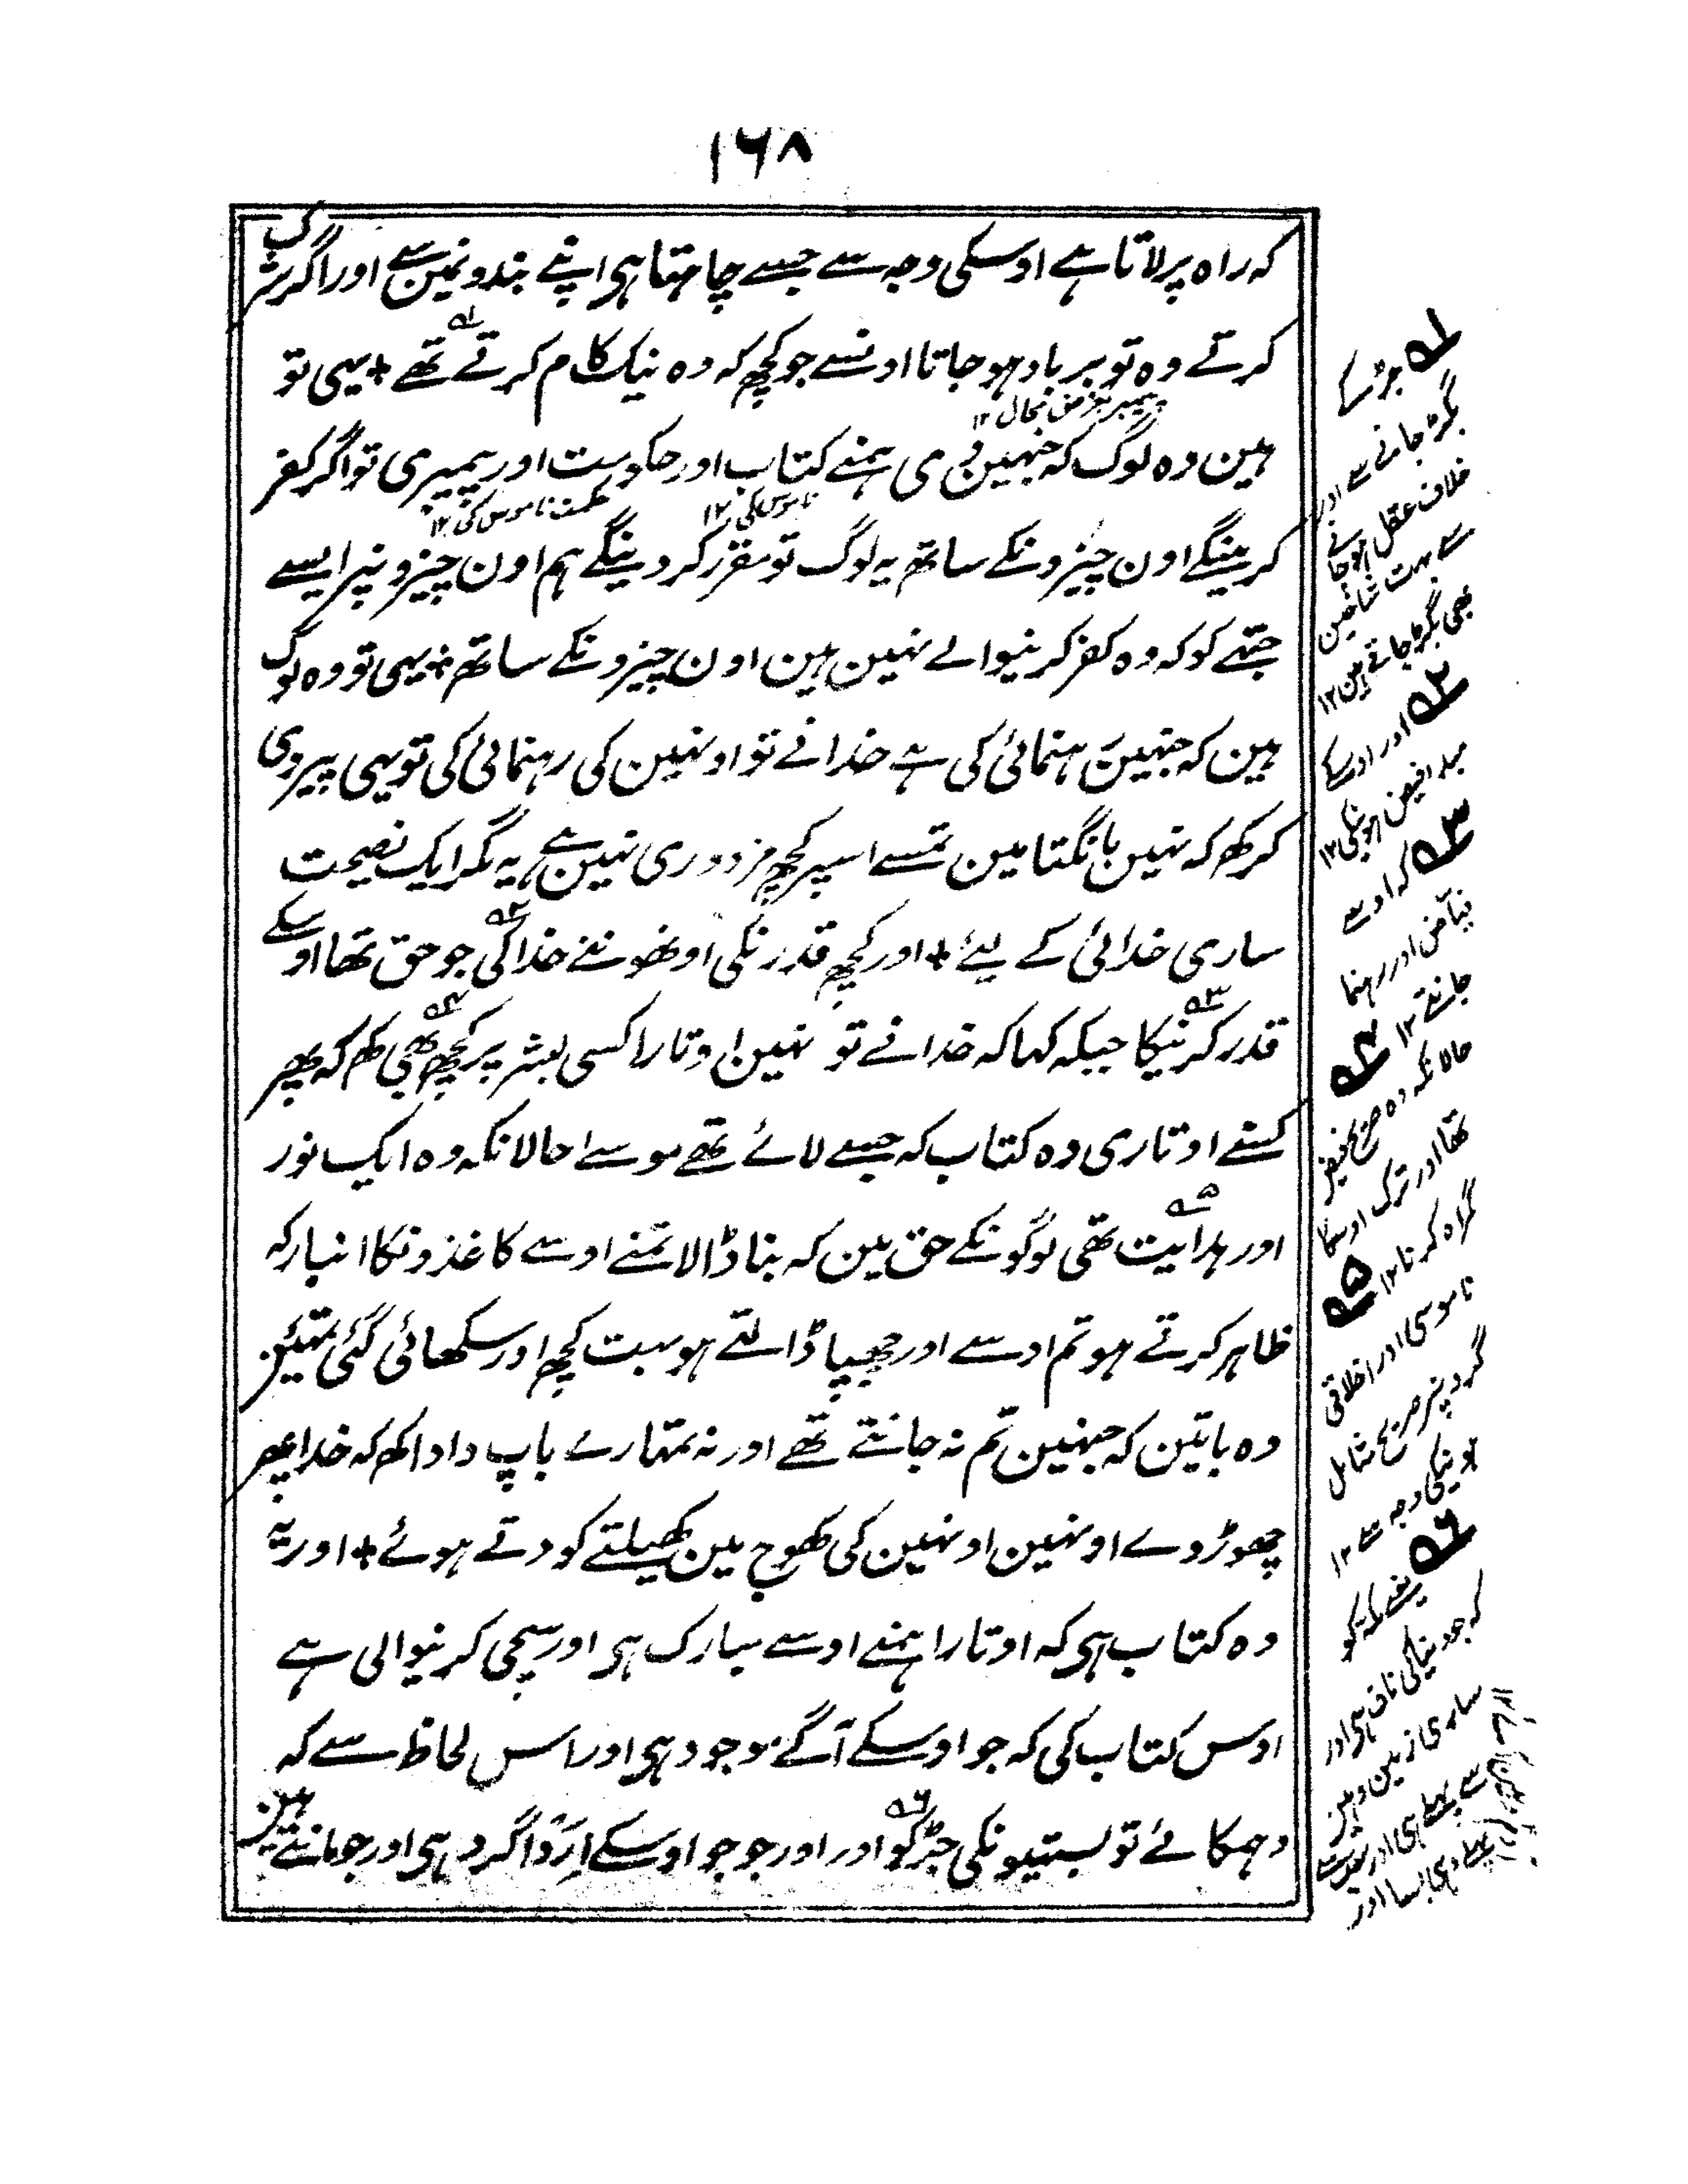 ۱۶۸
کہ راہ پر لاتا ہے اوسکی وجہ سے جسے چاہتا ہی اپنے بندونمین سے اور اگر شرک
کرتے وہ تو برباد ہو جاتا اونسے جو کچھ کہ وہ نیک کام کرتے تھے٩١ * یہی تو
ہین وہ لوگ کہ جنہین دی ہمنے کتاب اور حکومت اور پیمبری تو اگر کفر
کرینگے اون چیزونکے ساتھ یہ لوگ تو مقرر کردینگے ہم اون چیزونپر ایسے
جتہے کو کہ وہ کفر کرنیوالے نہین ہین اون چیزونکے ساتھ * یہی تو وہ لوگ
ہین کہ جنہین رہنمائی کی ہے خدا نے تو اونہین کی رہنمائی کی تو یہی پیروی
کر کھ کہ نہین مانگتا مین تمسے اسپر کچھ مزدوری نہین ہے یہ مگر ایک نصیحت
ساری خدائی کے لیئے * اور کچھ قدر نکی اونھوننے خدا کی٩٢ جو حق تھا اوسکے
قدر کرنیکا٩٣ جبکہ کہا کہ خدا نے تو نہین اوتارا کسی بشر پر کچھ بھی٩٤ کھ کہ پھر
کسنے اوتاری وہ کتاب کہ جسے لائے تھے موسےٰ حالانکہ وہ ایک نور
اور ہدایت٩٥ تھی لوگونکے حق مین کہ بنا ڈالا تمنے اوسے کاغذونکا انبار کہ
ظاہر کرتے ہو تم اوسے اور چھپا ڈالتے ہو بہت کچھ اور سکھائی گئی تمہین
وہ باتین کہ جنہین تم نہ جانتے تھے اور نہ تمہارے باپ دادا کھ کہ خدا پھر
چھوڑ دے اونہین اونہین کی کھوج مین کھیلتے کودتے ہوئے * اور یہ
وہ کتاب ہی کہ اوتارا ہمنے اوسے مبارک ہی اور سچی کرنیوالی ہے
اوس کتاب کی کہ جو اوسکے آگے موجود ہی اور اس لحاظ سے کہ
دہمکائے تو بستیونکی جڑ کو٩٦ اور اور جو جو اوسکے اردا گرد ہی اور جو مانتے ہین
٩١ جڑ کے
بگڑ جانے سے اور
خلاف عقل ہو جانے
سے بہت شاخین
بھی بگڑ جاتے ہین ۱۲
٩٢ اور اوسکے
مبدا فیض ہونیکی ۱۲
٩٣ کہ اوسے
فیاض اور رہنما
جانتے ۱۲
٩٤
حالانکہ وہ صریح فیض
تھا اور ترک اوسکا
گمراہ کرنا ۱۲
٩٥
ناموسی اور اخلاقی
گردونپر صریح شامل
ہونیکی وجہ سے ۱۲
٩٦ یعنے مکہ کو
کہ جو دنیا کی ناف ہی اور
ساری زمین
سے پہلے ہی اور
پہلے وہی بسا اور